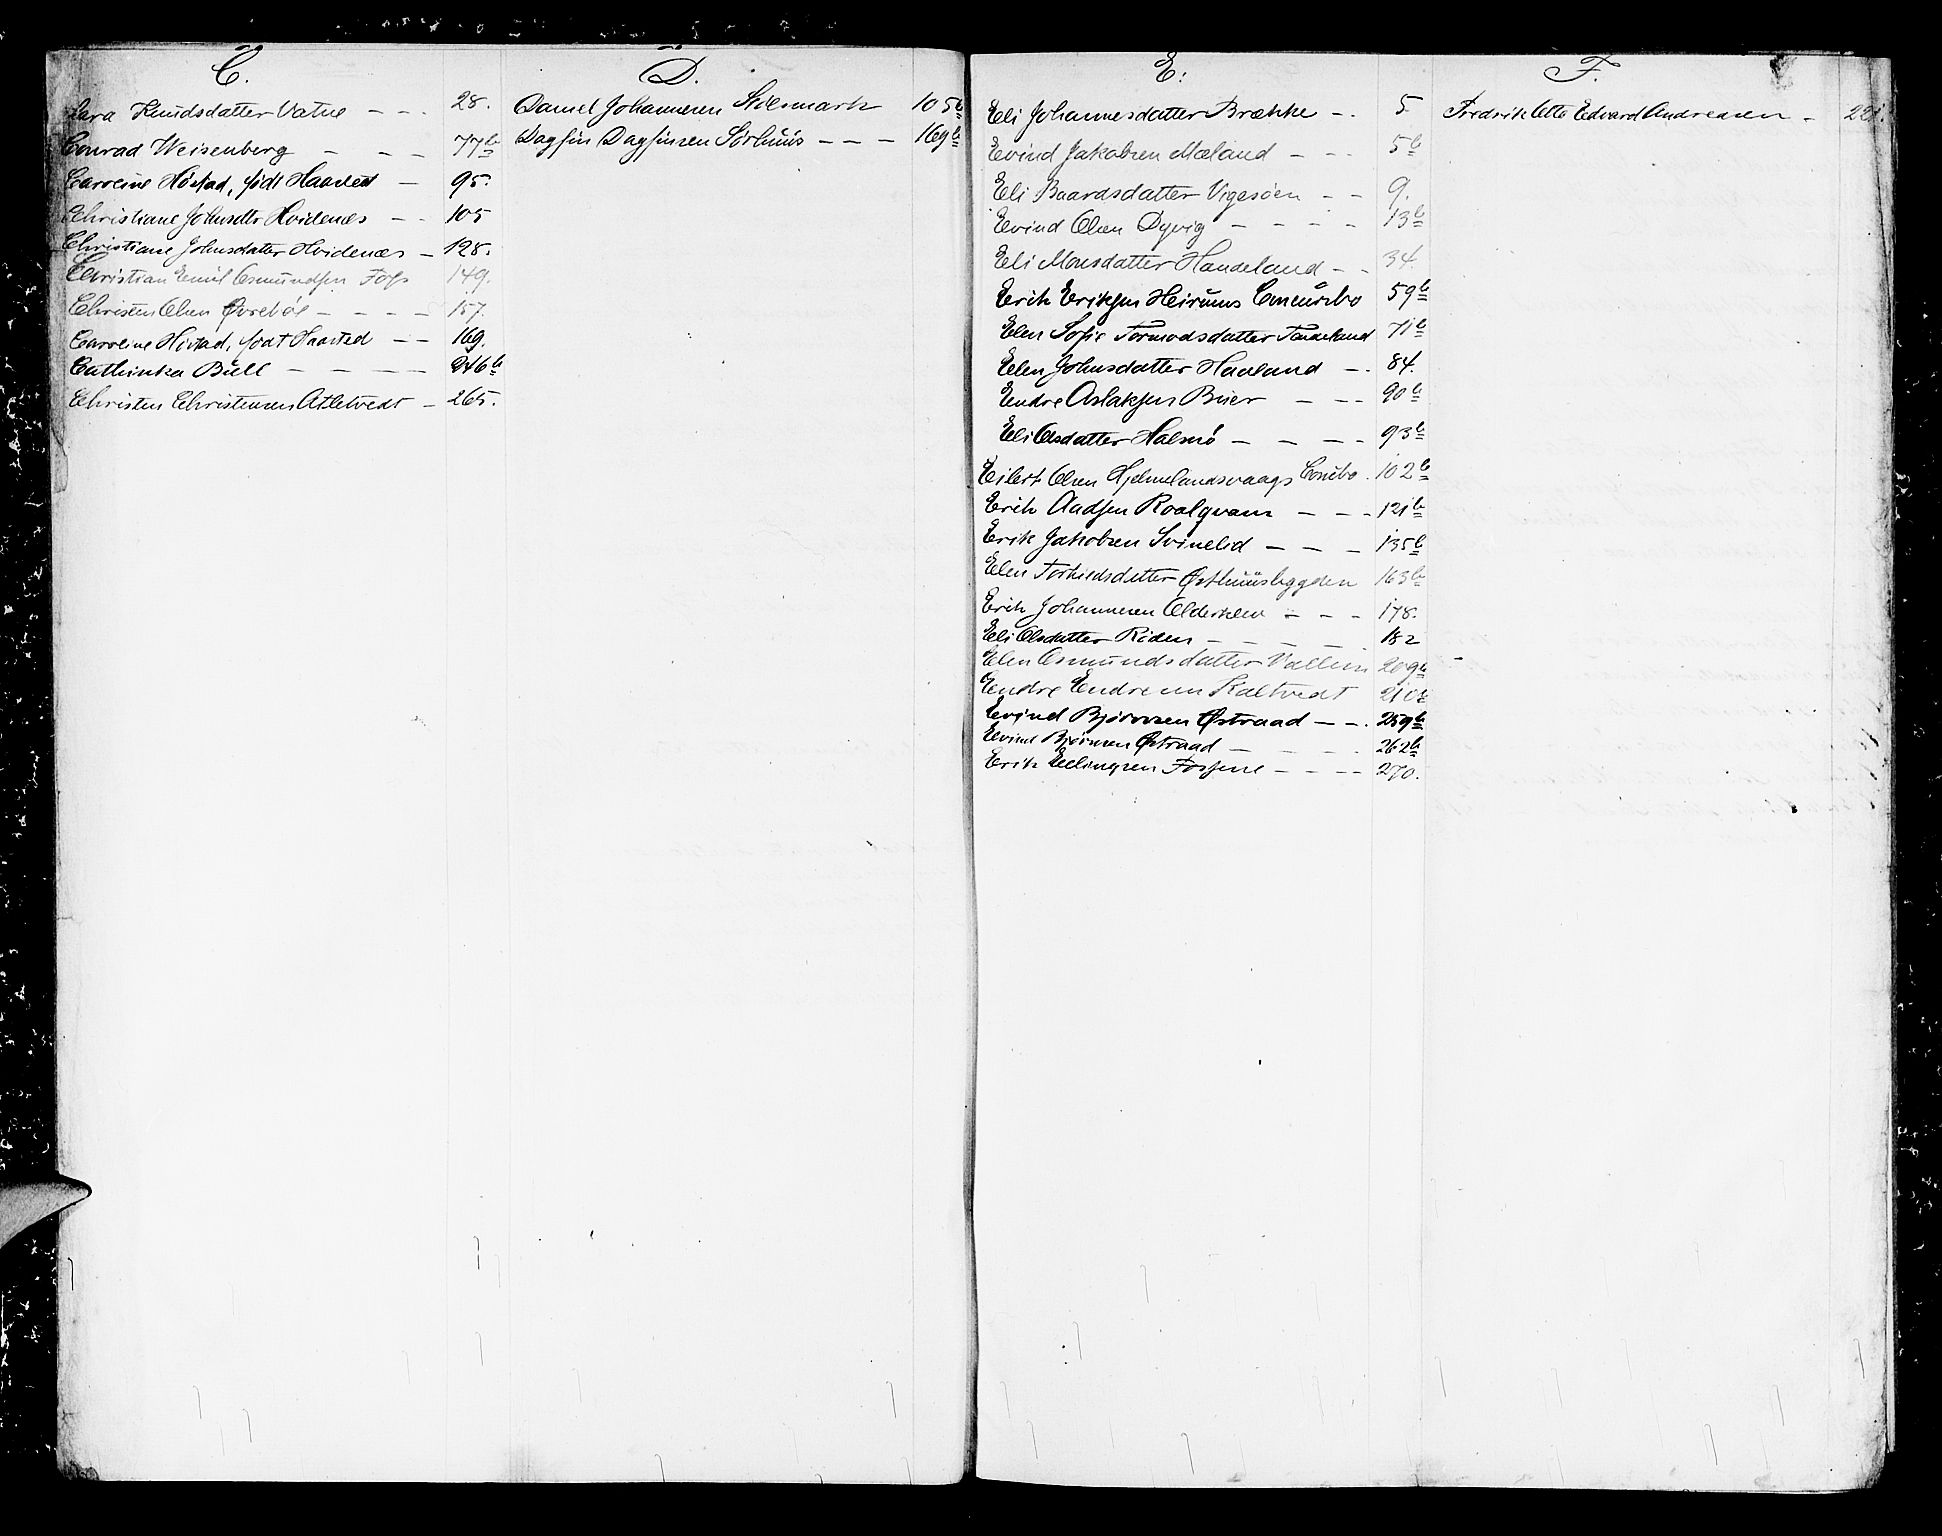 C.
Cara Knudsdatter Vatne - - - 28.
Conrad Weisenberg - - - 77b
Caroline Høstad, født Haasted - 95.
Christiane Johnsdtr Hvidenæs - - 105
Christiane Johnsdatter Hvidenæs - 128.
Christian Emil Osmundsen Fos 149.
Christen Olsen Øvrebøe - - - - 157.
Caroline Høstad, født Haasted - - 169.
Cathinka Bull - - - - 246b
Christen Christensen Atletvedt - 265.
D.
Daniel Johannesen Stølsmark 105b
Dagfin Dagfinsen Sørhuus - - - 169b
E.
Eli Johannesdatter Brække - . 5
Eivind Jakobsen Mæland - - - 5b
Eli Baardsdatter Vigesøen - - 9.
Eivind Olsen Dyvig - - - - 13b
Eli Monsdatter Handeland - - 34.
Erik Eriksen Heirums Concursbo 59b
Elen Sofie Tormodsdatter Tandeland 71b
Elen Johnsdatter Haaland - . 84.
Endre Aslaksen Buer - - - 90b
Eli Olsdatter Halsnø - - - - 93b
Eilert Olsen Hjelmelandsvaags Concbo. 102b
Erik Aadsen Roalqvam - - - 121b
Erik Jakobsen Svinelid - - - 135b
Elen Torkildsdatter Østhuusbygden 163b
Erik Johannesen Olderklev - - - 178.
Eli Olsdatter Røden - - - - 182
Elen Osmundsdatter 209b
Endre Endresen Kaltvedt 210b
Eivind Bjørnsen Østraad - - . 259b
Eivind Bjørnsen Østraad - - - - 262b
Erik Ellingsen Fossene - - - - 270.
F.
Fredrik Otto Edvard Andresen - 221.